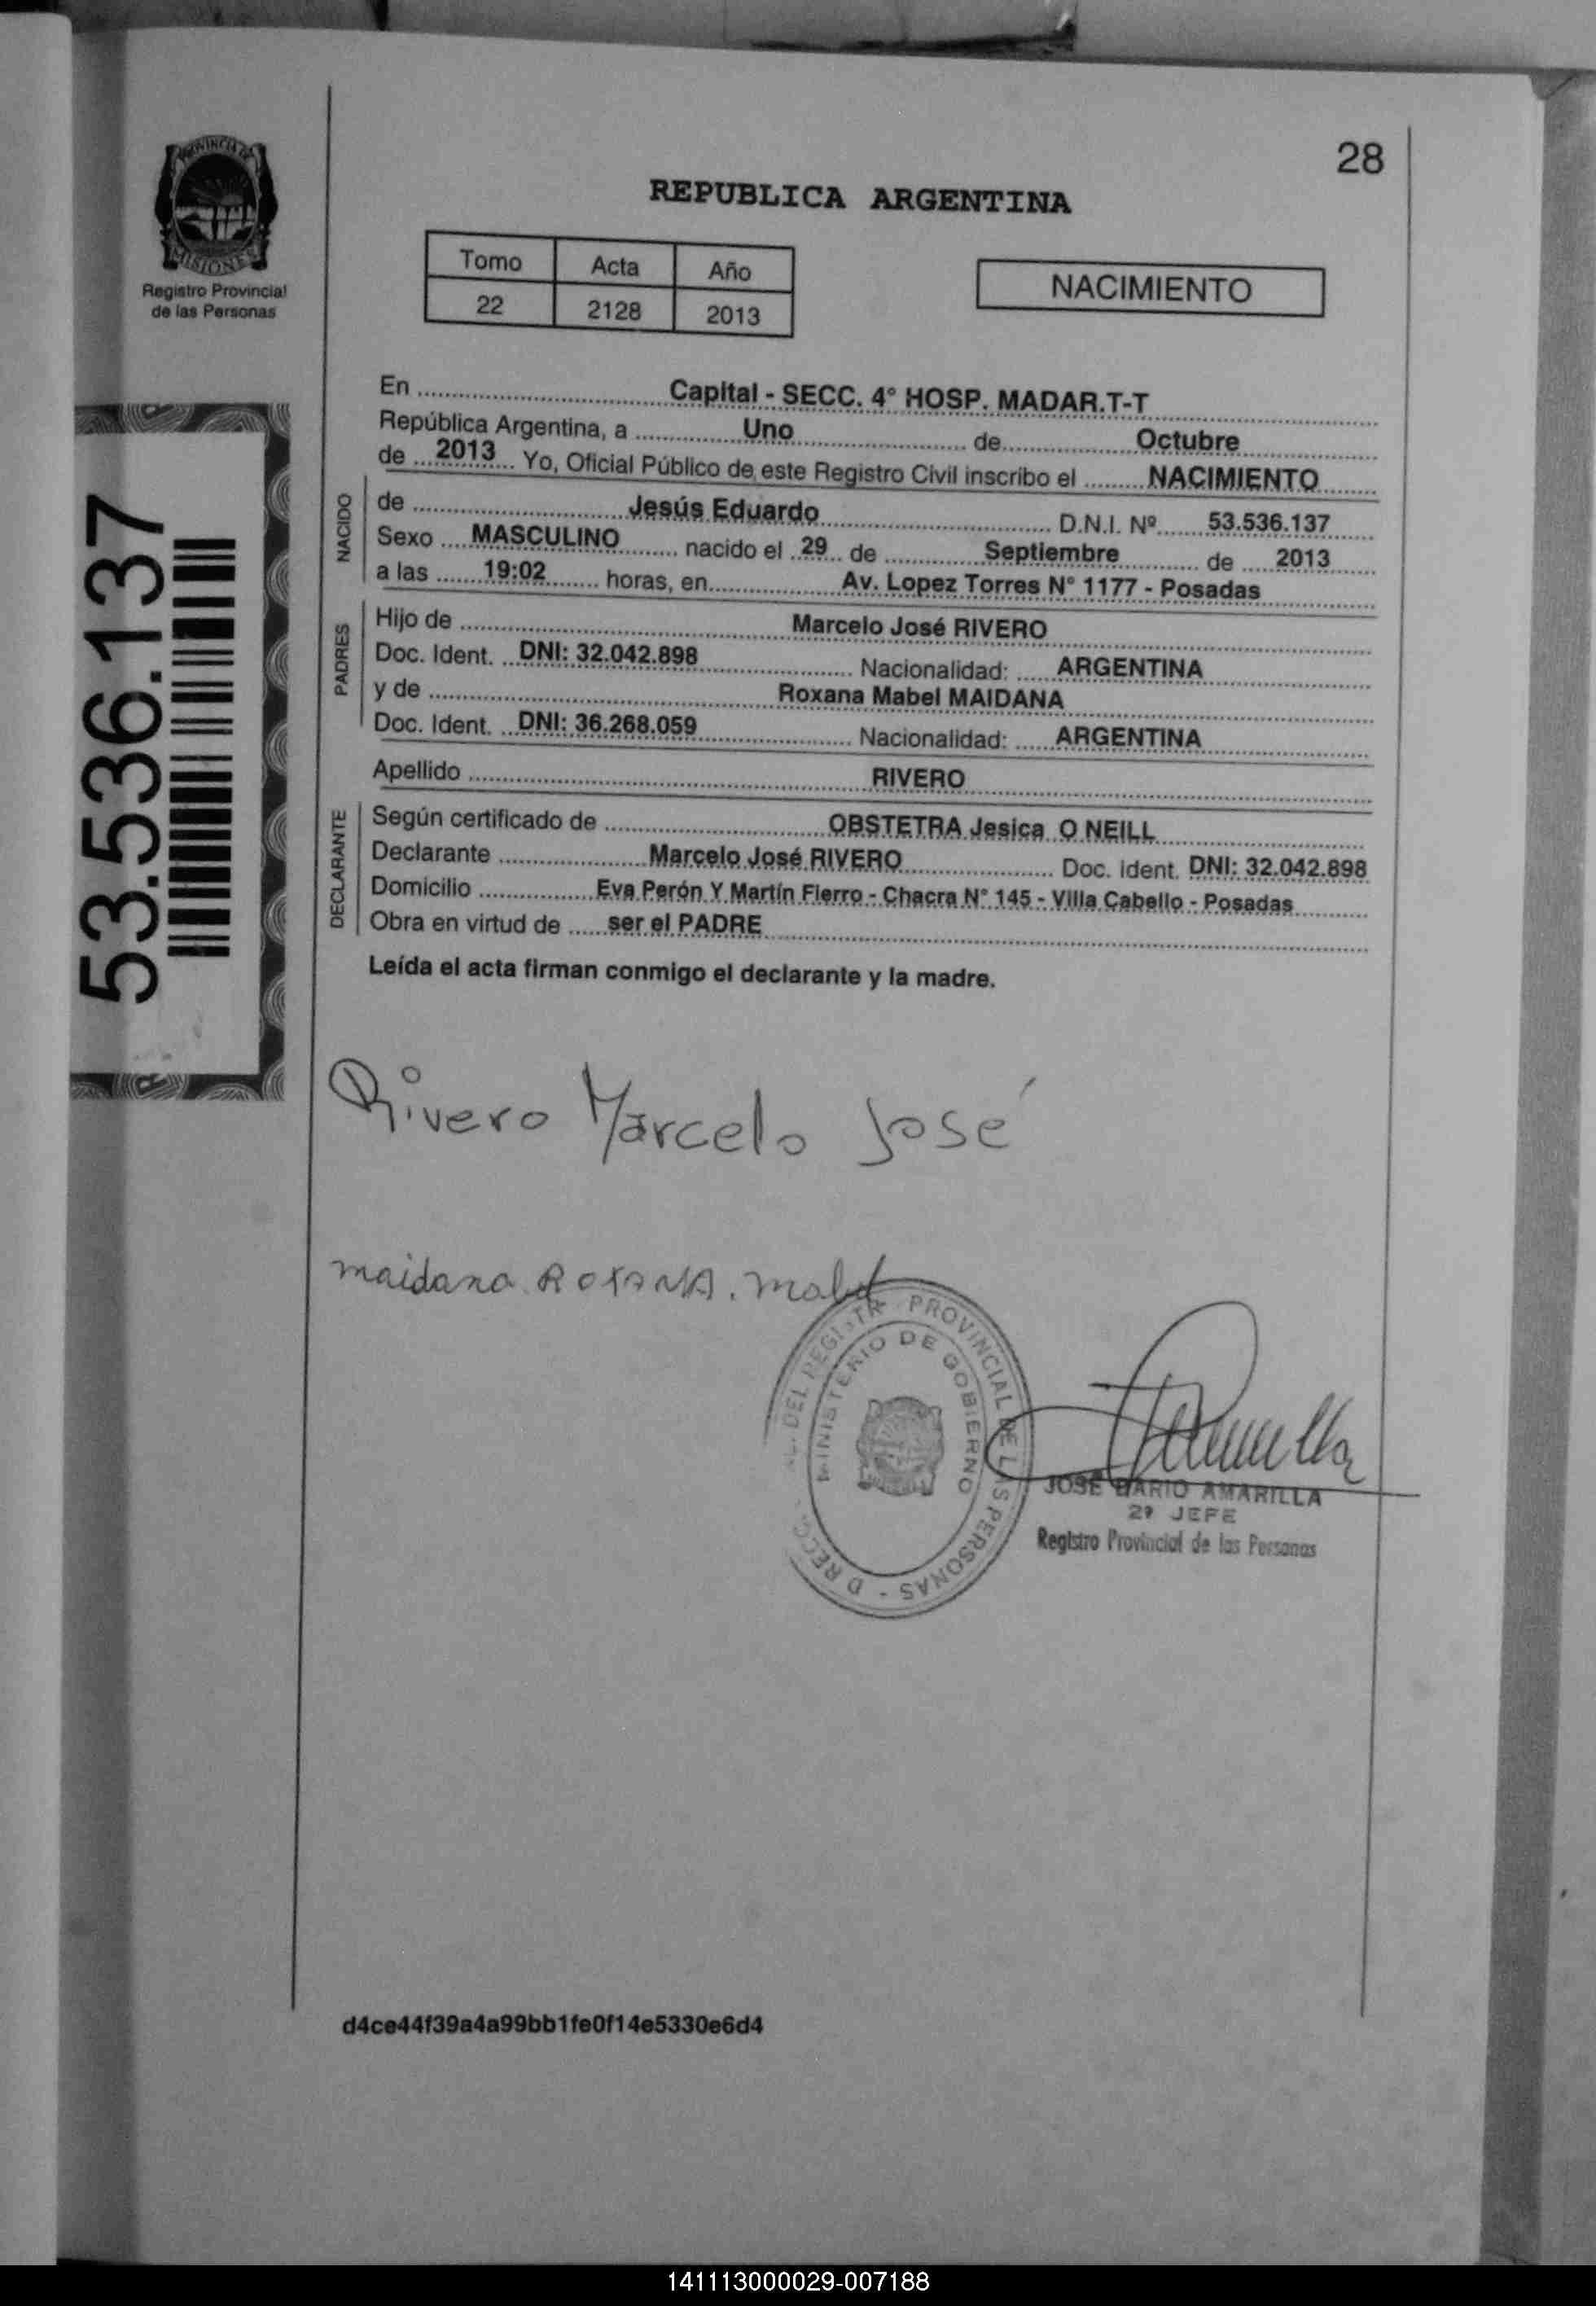 28
PROVINCIA DE
MISIONES
Registro Provincial
de las Personas
REPUBLICA ARGENTINA
Tomo Acta Año
22 2128 2013
NACIMIENTO
53.536.137
En Capital - SECC. 4° HOSP. MADAR.T-T
República Argentina, a Uno de Octubre
de 2013 Yo, Oficial Público de este Registro Civil inscribo el NACIMIENTO
NACIDO
de Jesús Eduardo D.N.I. Nº 53.536.137
Sexo MASCULINO nacido el 29 de Septiembre de 2013
a las 19:02 horas, en Av. Lopez Torres N° 1177 - Posadas
PADRES
Hijo de Marcelo José RIVERO
Doc. Ident. DNI: 32.042.898 Nacionalidad: ARGENTINA
y de Roxana Mabel MAIDANA
Doc. Ident. DNI: 36.268.059 Nacionalidad: ARGENTINA
Apellido RIVERO
DECLARANTE
Según certificado de OBSTETRA Jesica O NEILL
Declarante Marcelo José RIVERO Doc. Ident. DNI: 32.042.898
Domicilio Eva Perón Y Martín Fierro - Chacra N° 145 - Villa Cabello - Posadas
Obra en virtud de ser el PADRE
Leída el acta firman conmigo el declarante y la madre.
Rivero Marcelo José
maidana ROXANA. mabel
DEL REGISTR PROVINCIAL DE LAS PERSONAS
MINISTERIO DE GOBIERNO
JOSÉ DARIO AMARILLA
2º JEFE
Registro Provincial de las Personas
d4ce44f39a4a99bb1fe0f14e5330e6d4
141113000029-007188